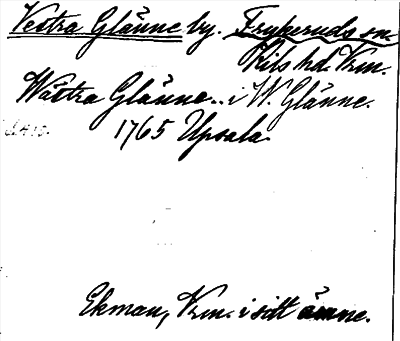 Vestra Glänne by. Frykeruds sn.
Kils hd. Vrm.
Wästra Glänne.. i W. Glänne.
1765 Upsala.
Ekman, Vrm. i sitt ämne.